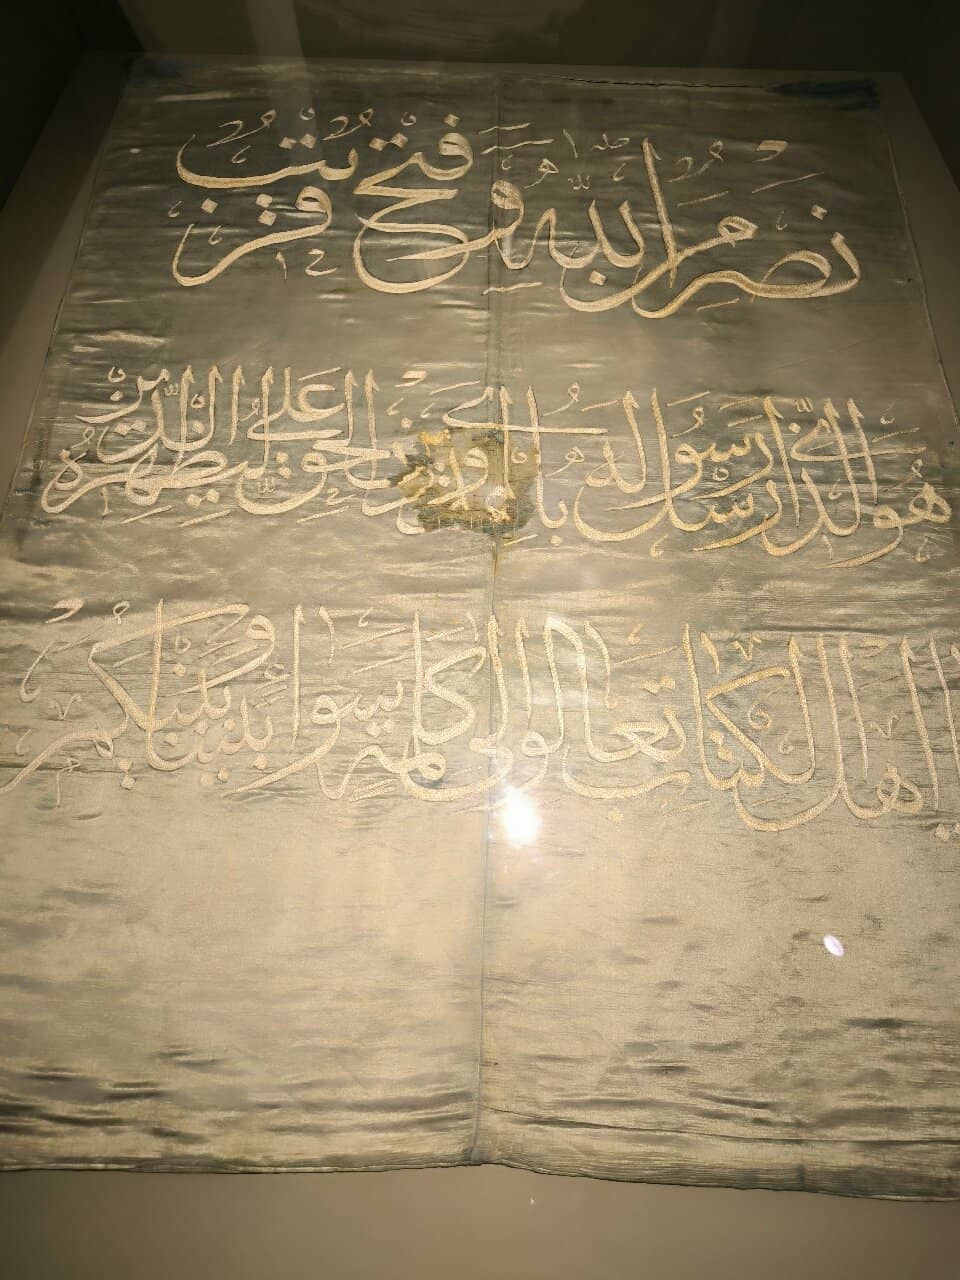 نَصْرٌ مِنَ اللّٰهِ وَفَتْحٌ قَرِيبٌ
هُوَ الَّذِي أَرْسَلَ رَسُولَهُ بِالْهُدَى وَدِينِ الْحَقِّ لِيُظْهِرَهُ عَلَى الدِّينِ
يا اهل الكتاب تعالوا الى كلمة سواء بيننا وبينكم